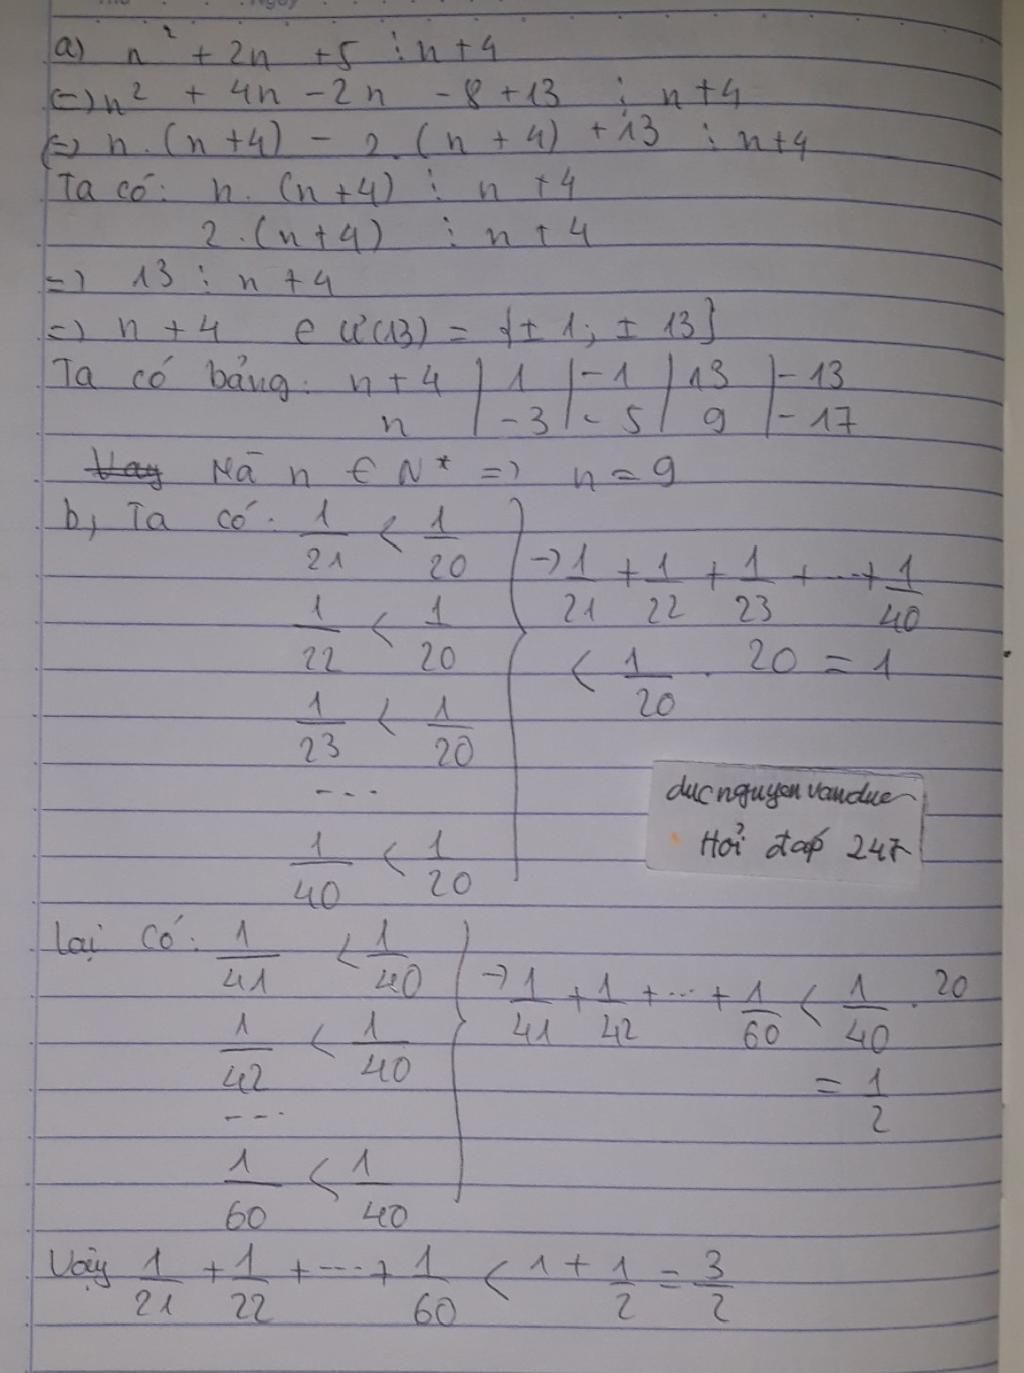 a) n² + 2n + 5 ⋮ n + 4
(=) n² + 4n - 2n - 8 + 13 ⋮ n + 4
(=) n . (n + 4) - 2. (n + 4) + 13 ⋮ n + 4
Ta có: n. (n + 4) ⋮ n + 4
2 . (n + 4) ⋮ n + 4
=) 13 ⋮ n + 4
=) n + 4 ∈ Ư(13) = {± 1; ± 13}
Ta có bảng: n + 4 | 1 | - 1 | 13 | - 13
n | - 3 | - 5 | 9 | - 17
Mà n ∈ N* =) n = 9
b, Ta có: 1/21 < 1/20
1/22 < 1/20
1/23 < 1/20
...
1/40 < 1/20
→ 1/21 + 1/22 + 1/23 + ... + 1/40
< 1/20 . 20 = 1
ducnguyenvanduc
Hỏi đáp 247
Lại có: 1/41 < 1/40
1/42 < 1/40
...
1/60 < 1/40
→ 1/41 + 1/42 + ... + 1/60 < 1/40 . 20
= 1/2
Vậy 1/21 + 1/22 + ... + 1/60 < 1 + 1/2 = 3/2